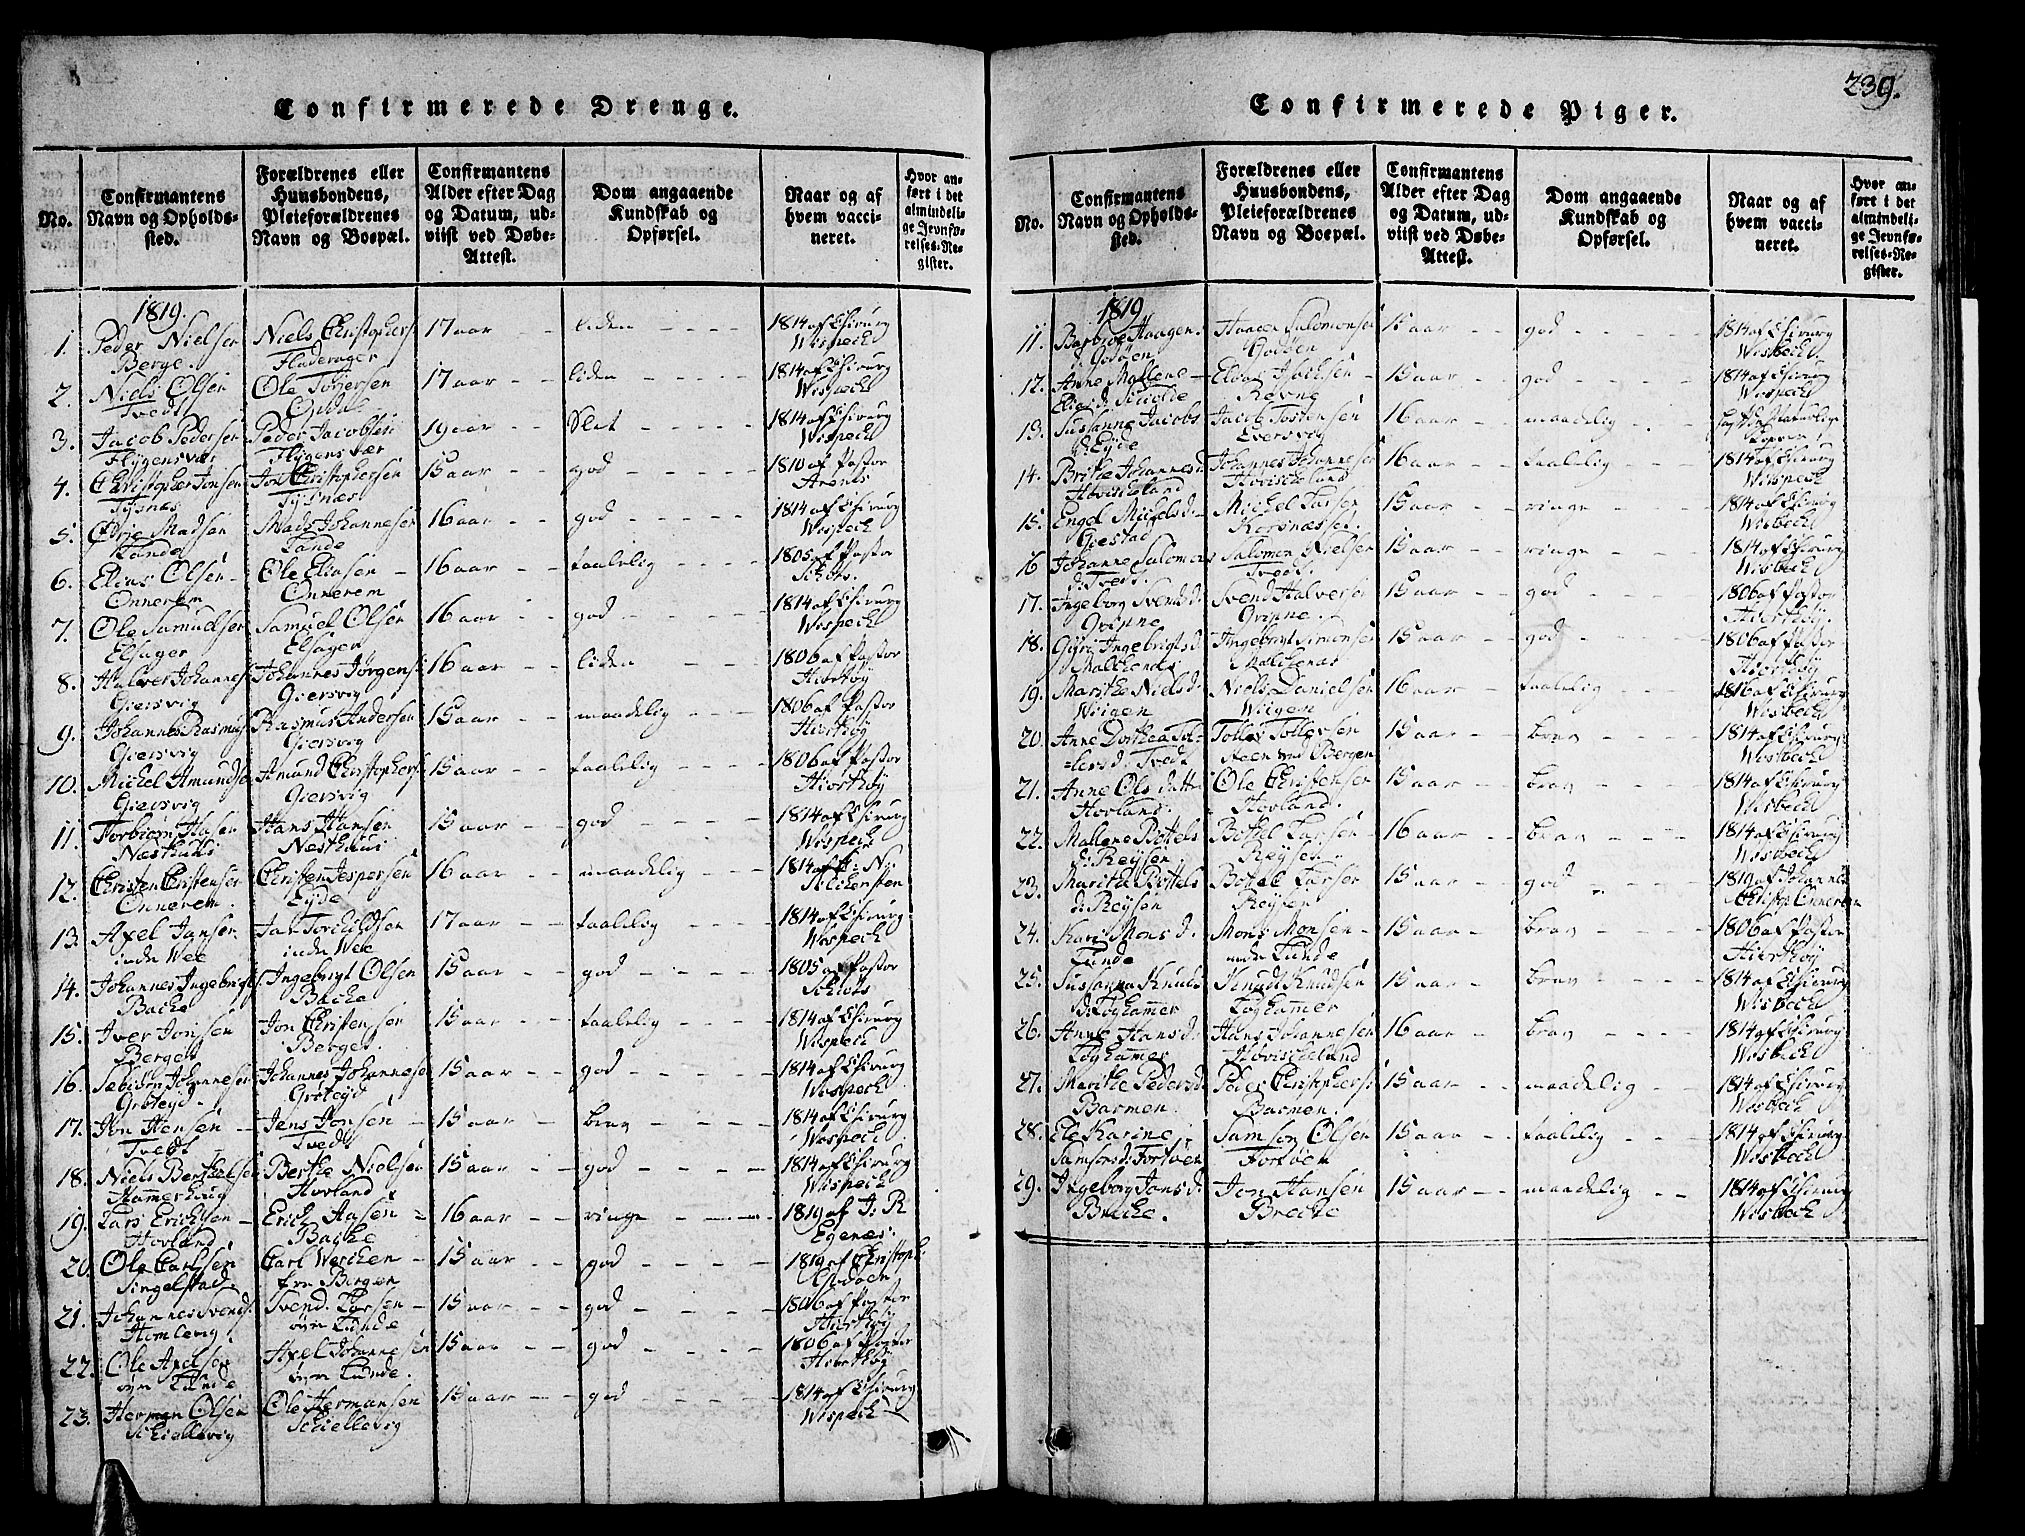 239.
Confirmerede Drenge.
No.
Confirmantens Navn og Opholds-sted.
Forældrenes eller Huusbondens, Pleieforældrenes Navn og Boepæl.
Confirmantens Alder efter Dag og Datum, ud-viist ved Døbe-Attest.
Dom angaaende Kundskab og Opførsel.
Naar og af hvem vacci-neret.
Hvor an-ført i det almindeli-ge Jevnfø-relses-Re-gister.
1819.
1. Peder Nielsen Berge. Niels Christophers Fladerager 17 aar liden 1814 af Chirurg Wispech
2. Niels Olsen Tvedt Ole Torgersen Opdal 17 aar liden 1814 af Chirurg Wispech
3. Jacob Pedersen Flygensvær Peder Jacobsen Flygensvær 19 aar Slet 1814 af Chirurg Wispech
4. Christopher Jonsen Tysnæs Jon Christophersen Tysnæs 15 aar god 1810 af Pastor Arentz
5. Ørje Madsen Lande Mads Johannesen Lande 16 aar god 1814 af Chirurg Wispech
6. Elias Olsen Onnerem Ole Eliasen Onnerem 16 aar taalelig 1805 af Pastor Schøts.
7. Ole Samuelsen Elsager Samuel Olsen Elsager 16 aar god 1814 af Chirurg Wispech
8. Halver Johannes Giersvig Johannes Jørgens Giersvig 16 aar liden 1806 af Pastor Hiorthøy
9. Johannes Rasmus Giersvig Rasmus Andersen Giersvig 15 aar maadelig 1806 af Pastor Hiorthøy
10. Michel Amundsen Giersvig Amund Christophers Giersvig 15 aar taalelig 1806 af Pastor Hiorthøy
11. Torbiørn Hasen Næsthuus Hans Hansen Næsthuus 15 aar god 1814 af Chirurg Wispech
12. Christen Christensen Onnerem. Christen Jespersen Eyde 16 aar maadelig 1814 af
13. Axel Jansen indre Wee Jan Torchildsen indre Wee 17 aar taalelig 1814 af Chirurg Wispech
14. Johannes Ingebrigts. Bache Ingebrigt Olsen Bache 15 aar god 1805 af Pastor Schøts
15. Iver Jonsen Berget Jon Christensen Berget. 15 aar taalelig 1814 af Chirurg Wispech
16. Sæbiørn Johannesen Grøteyd. Johannes Johannesen Grøteyd 15 aar god 1814 af Chirurg Wispech
17. Jon Jensen Tvedt Jens Jonsen Tvedt 15 aar brav 1814 af Chirurg Wispech
18. Niels Berthelsen Hammerhaug Berthe Nielsen Hovland 15 aar god 1814 af Chirurg Wispech
19. Lars Erichsen Hovland Erich Aasen Bache 16 aar ringe 1819 af J: R Egenæs.
20. Ole Carlsen Singelstad. Carl Werchen fra Bergen 15 aar god 1819 af Christoph: Godøen
21. Johannes Svends. Homlevig Svend Larsen øvre Lunde 15 aar god 1806 af Pastor Hiorthøy
22. Ole Axelsen øvre Lunde Axel Johannesen øvre Lunde. 15 aar god 1806 af Pastor Hiorthøy
23. Herman Olsen Schiellevig Ole Hermansen Schiellevig 15 aar god 1814 af Chirurg Wispech
Confirmerede Piger.
No.
Confirmantens Navn og Opholds-sted.
Forældrenes eller Huusbondens, Pleieforældrenes Navn og Boepæl.
Confirmantens Alder efter Dag og Datum, ud-viist ved Døbe-Attest.
Dom angaaende Kundskab og Opførsel.
Naar og af hvem vacci-neret.
Hvor an-ført i det almindeli-ge Jevnfø-relses-Re-gister.
1819
11. Barbroe Haagen d: Godøen Haagen Salomonsen Godøen 15 aar god 1814 af Chirurg Wisbech
12. Anne Mallene Elias d: Schiolde Elias Revne 15 aar god 1814 af Chirurg Wispech
13. Susanne Jacobs d: Eyde Jacob Tostensen Eversvig 16 aar maadelig de naturlige Kopper
14. Brithe Johannes d: Hovischeland Johannes Johannesen Hovischeland 16 aar taalelig 1814 af Chirurg Wispech
15. Engel Michels d: Giestad Michel Larsen Korsnæsset 15 aar ringe 1814 af Chirurg Wisbech
16 Johanne Salomons d: Tvedt. Salomon Nielsen Tvedt. 15 aar ringe 1814 af Chirurg Wisbech
17. Ingeborg Svends d: Qvinne Svend Halversen Qvinne. 15 aar god 1806 af Pastor Hiorthøy.
18. Gyri Ingebrigts d: Malchenæs Ingebrigt Simonsen Malchenæs 15 aar god 1806 af Pastor Hiorthøy
19. Marithe Niels d: Wiigen Niels Danielsen Wiigen 16 aar taalelig 1816 af Chirurg Wisbech
20. Anne Dorthea Tol-lefsd: Tvedt Tollev Tollevsen Steen ved Bergen 15 aar brav 1814 af Chirurg Wisbech
21. Anne Ols datter Hovland. Ole Christensen Hovland. 15 aar brav 1814 af Chirurg Wisbech
22. Mallene Bottels d: Reysen Bottel Larsen Reysen 16 aar brav 1814 af Chirurg Wisbech
23. Maritha Bottels d: Reysen Bottel Larsen Reysen 15 aar god 1810 af Johannes Christoph: Onnerem
24. Kari Mons d. Lunde Mons Monsen nedre Lunde 15 aar brav 1806 af Pastor Hiorthøy
25. Susanna Knuds d: Løghammer Knud Knudsen Løghammer 15 aar brav 1814 af Chirurg Wisbech
26. Anne Hans d. Løghammer Hans Johannesen Hovischeland 16 aar brav 1814 af Chirurg Wisbech
27. Marithe Pedersd: Barmen. Peder Christophers: Barmen. 15 aar maadelig 1814 af Chirurg Wisbech
28. Ele Karine Samsonsd: Fortvet Samson Olsen Fortvet 15 aar taalelig 1814 af Chirurg Wisbech
29. Ingeborg Jons d. Breche. Jon Hansen Breche 15 aar maadelig 1814 af Chirurg Wisbech